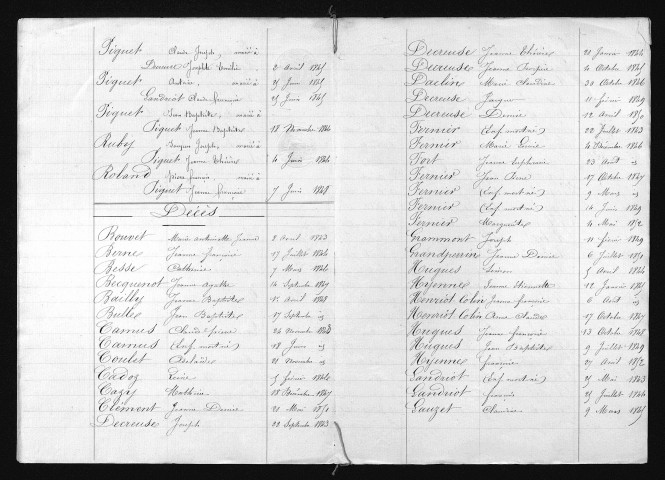 Piguet Claude Joseph, marié à
Josephte Emilie 2 Avril 1845
Piguet marié à
Landriot Claude françoise 25 Juin 1845
Piguet Jean Baptiste, marié à
Piguet Jeanne Baptiste 18 Novembre 1844
Ruby Joseph, marié à
Piguet Jeanne 4 Juin 1844
Roland Pierre françois marié à
Piguet Jeanne françoise 7 Juin 1848
Décès
Bouvet Marie Antoinette Jeanne 2 Avril 1843
Berne Jeanne françoise 17 Juillet 1844
Besse Catherine 7 Mars 1844
Becquenot Jeanne Agathe 14 Septembre 1847
Bailly Jeanne Baptiste 15 Avril 1848
Bulle Jean Baptiste 17 Septembre
Camus Claude Pierre 24 Novembre 1843
Camus (Enf mort né) 18 Janvier
Coulet Adélaïde 21 Novembre
Cadoz 5 février 1844
Cazy 18 Décembre 1847
Clément Jeanne Denise 21 Mai 1850
Decreuse Joseph 22 Septembre 1843
Decreuse Jeanne 21 Janvier 1844
Decreuse Jeanne 4 Octobre 1845
Daclin Marie Claudine 30 Octobre 1846
Decreuse Jacques 11 février 1849
Decreuse Denise 12 Avril 1850
Fernier (Enf mort né) 22 Juillet 1843
Fernier Marie 4 Décembre 1844
Fort Jeanne 23 Août
Fernier Jean 17 Octobre 1847
Fernier (Enf mort né) 9 Mars
Fernier (Enf mort né) 14 Juin 1849
Fernier Marguerite 4 Mai 1852
Grammont Joseph 11 février 1849
Grandperrin Jeanne Denise 6 Juillet 1850
Hugues 5 Avril 1844
Hyenne Jeanne Etiennette 12 Janvier 1845
Henriot Colin Jeanne françoise 6 Août
Henriot Colin Anne Claude 17 Octobre 1847
Hugues Jeanne françoise 13 Octobre 1848
Hugues Jean Baptiste 9 Juillet 1849
Hyenne françoise 27 Avril 1852
Landriot (Enf mort né) 25 Mai 1843
Landriot françois 25 Juillet 1844
Lauzet 9 Mars 1845